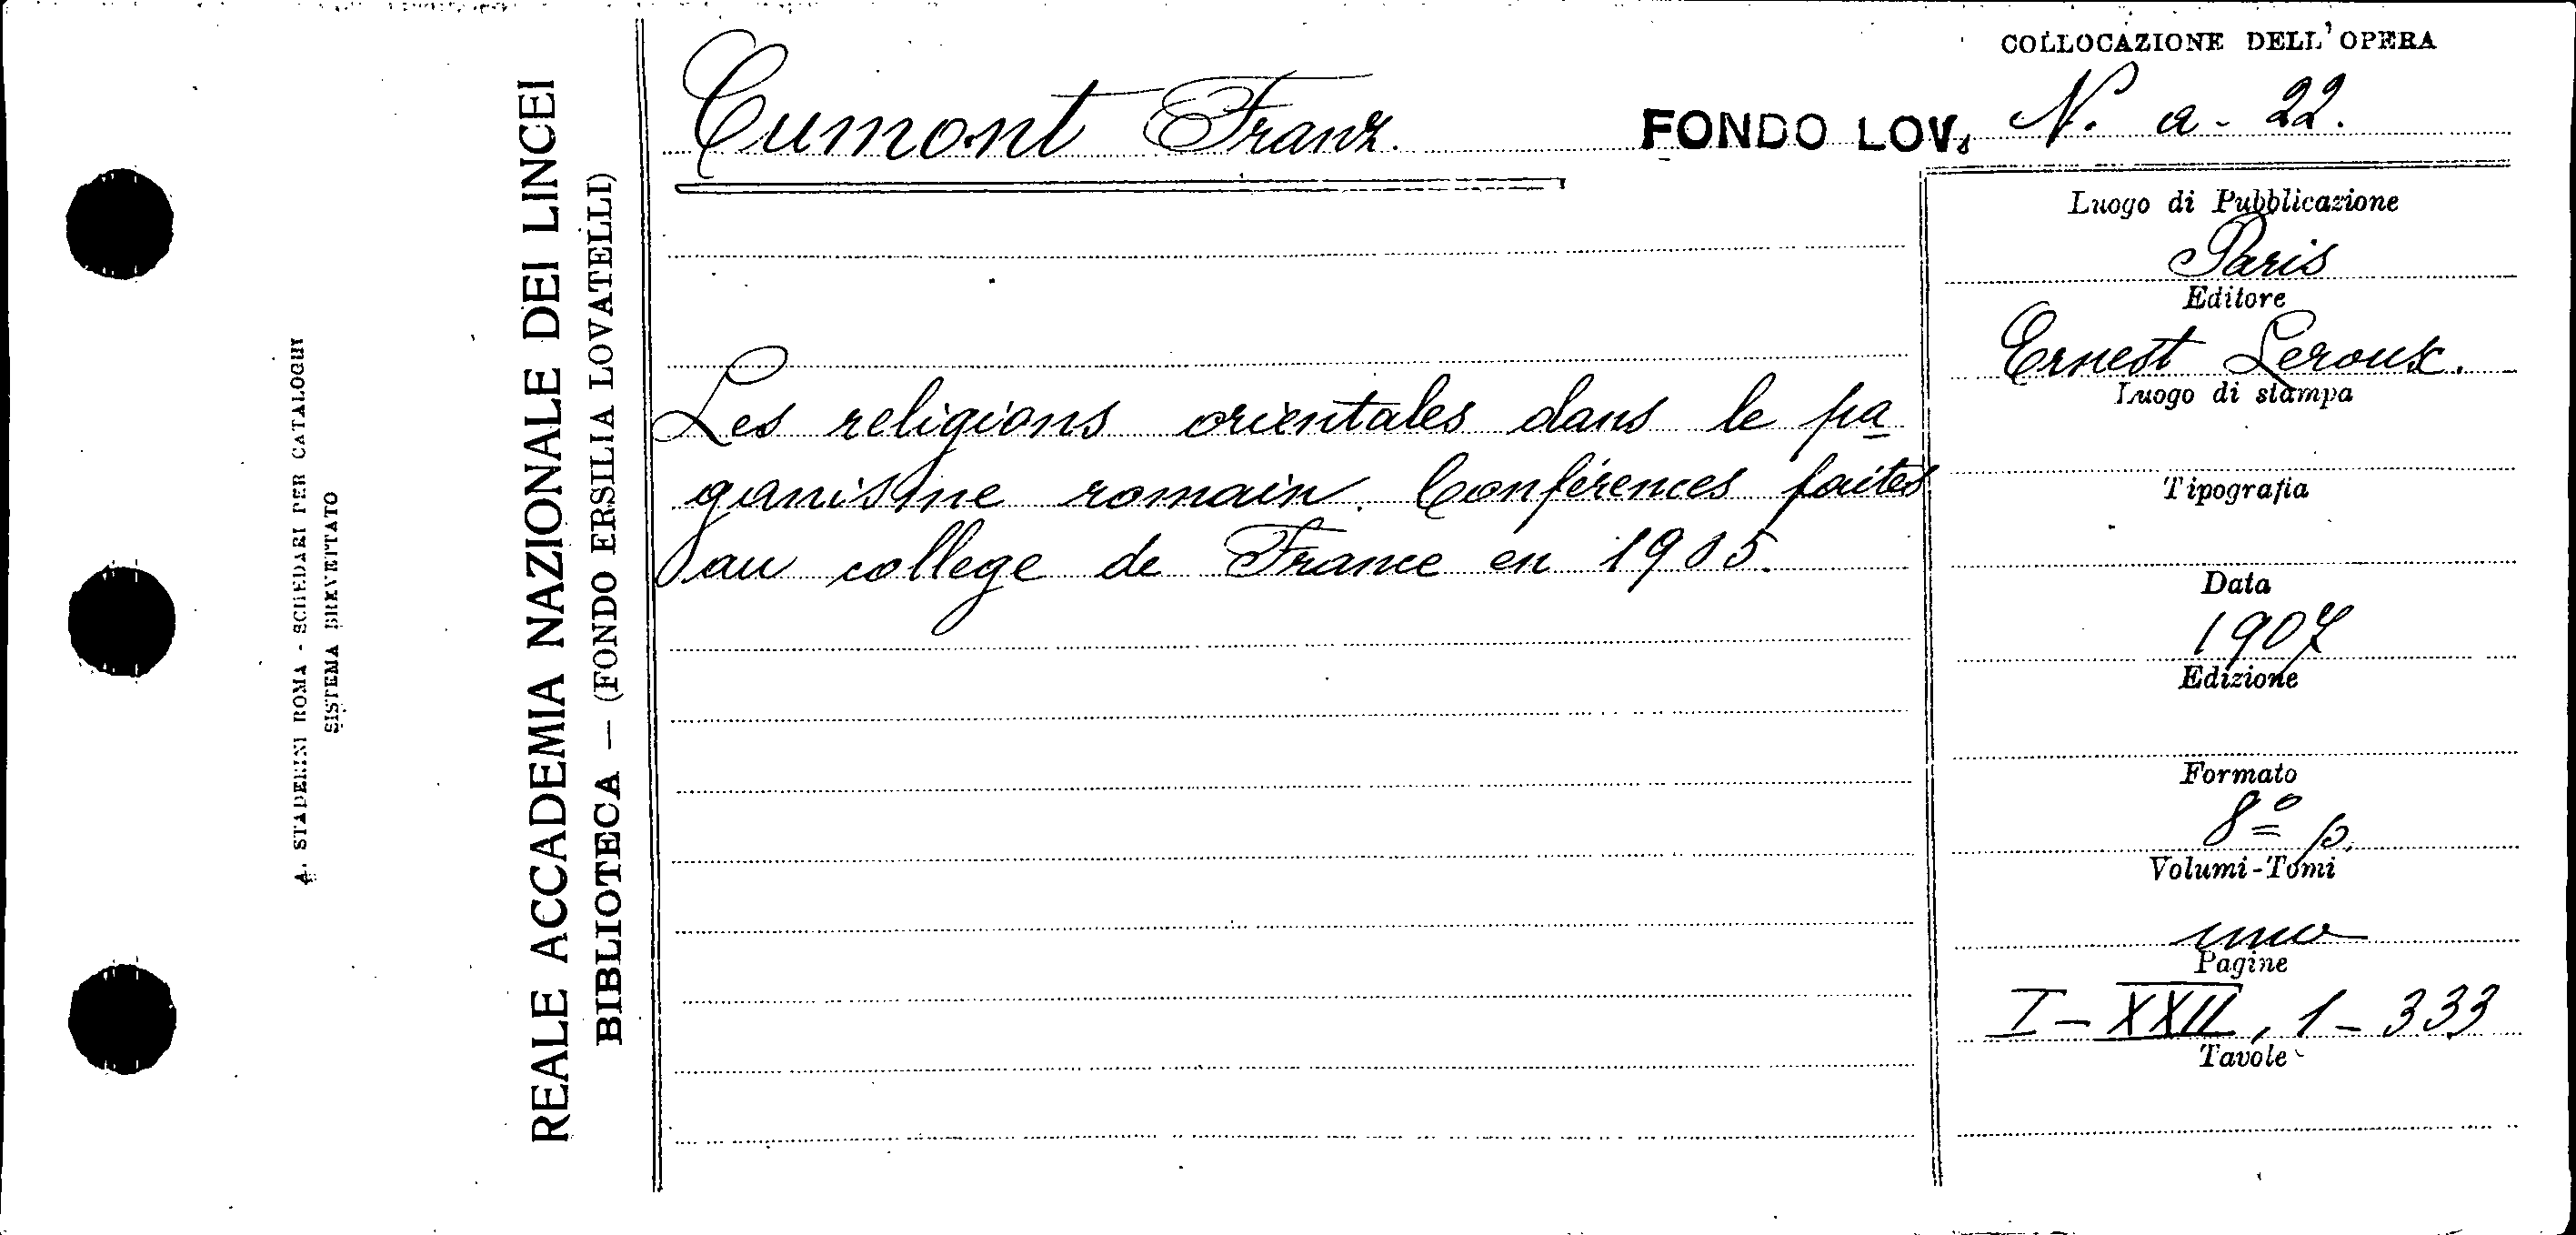 A. STADERINI ROMA - SCHEDARI PER CATALOGHI
SISTEMA BREVETTATO
REALE ACCADEMIA NAZIONALE DEI LINCEI
BIBLIOTECA — (FONDO ERSILIA LOVATELLI)
COLLOCAZIONE DELL'OPERA
Cumont Franz. FONDO LOV. N. a - 22.
Les religions orientales dans le pa
ganisme romain. Conférences faites
au college de France en 1905.
Luogo di Pubblicazione
Paris
Editore
Ernest Leroux.
Luogo di stampa
Tipografia
Data
1907
Edizione
Formato
8º p.
Volumi-Tomi
uno
Pagine
I - XXII, 1 - 333
Tavole